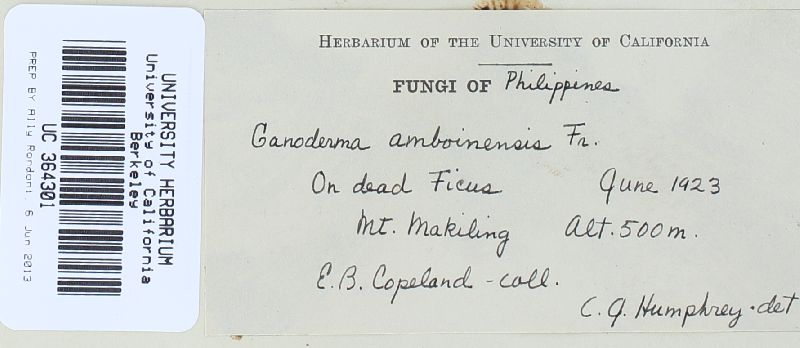 HERBARIUM OF THE UNIVERSITY OF CALIFORNIA
FUNGI OF Philippines
Ganoderma amboinensis Fr.
On dead Ficus June 1923
Mt. Makiling Alt. 500 m.
E.B. Copeland - coll.
C. J. Humphrey - det
UNIVERSITY HERBARIUM
University of California
Berkeley
UC 364301
PREP BY Ally Rondoni, 6 Jun 2013